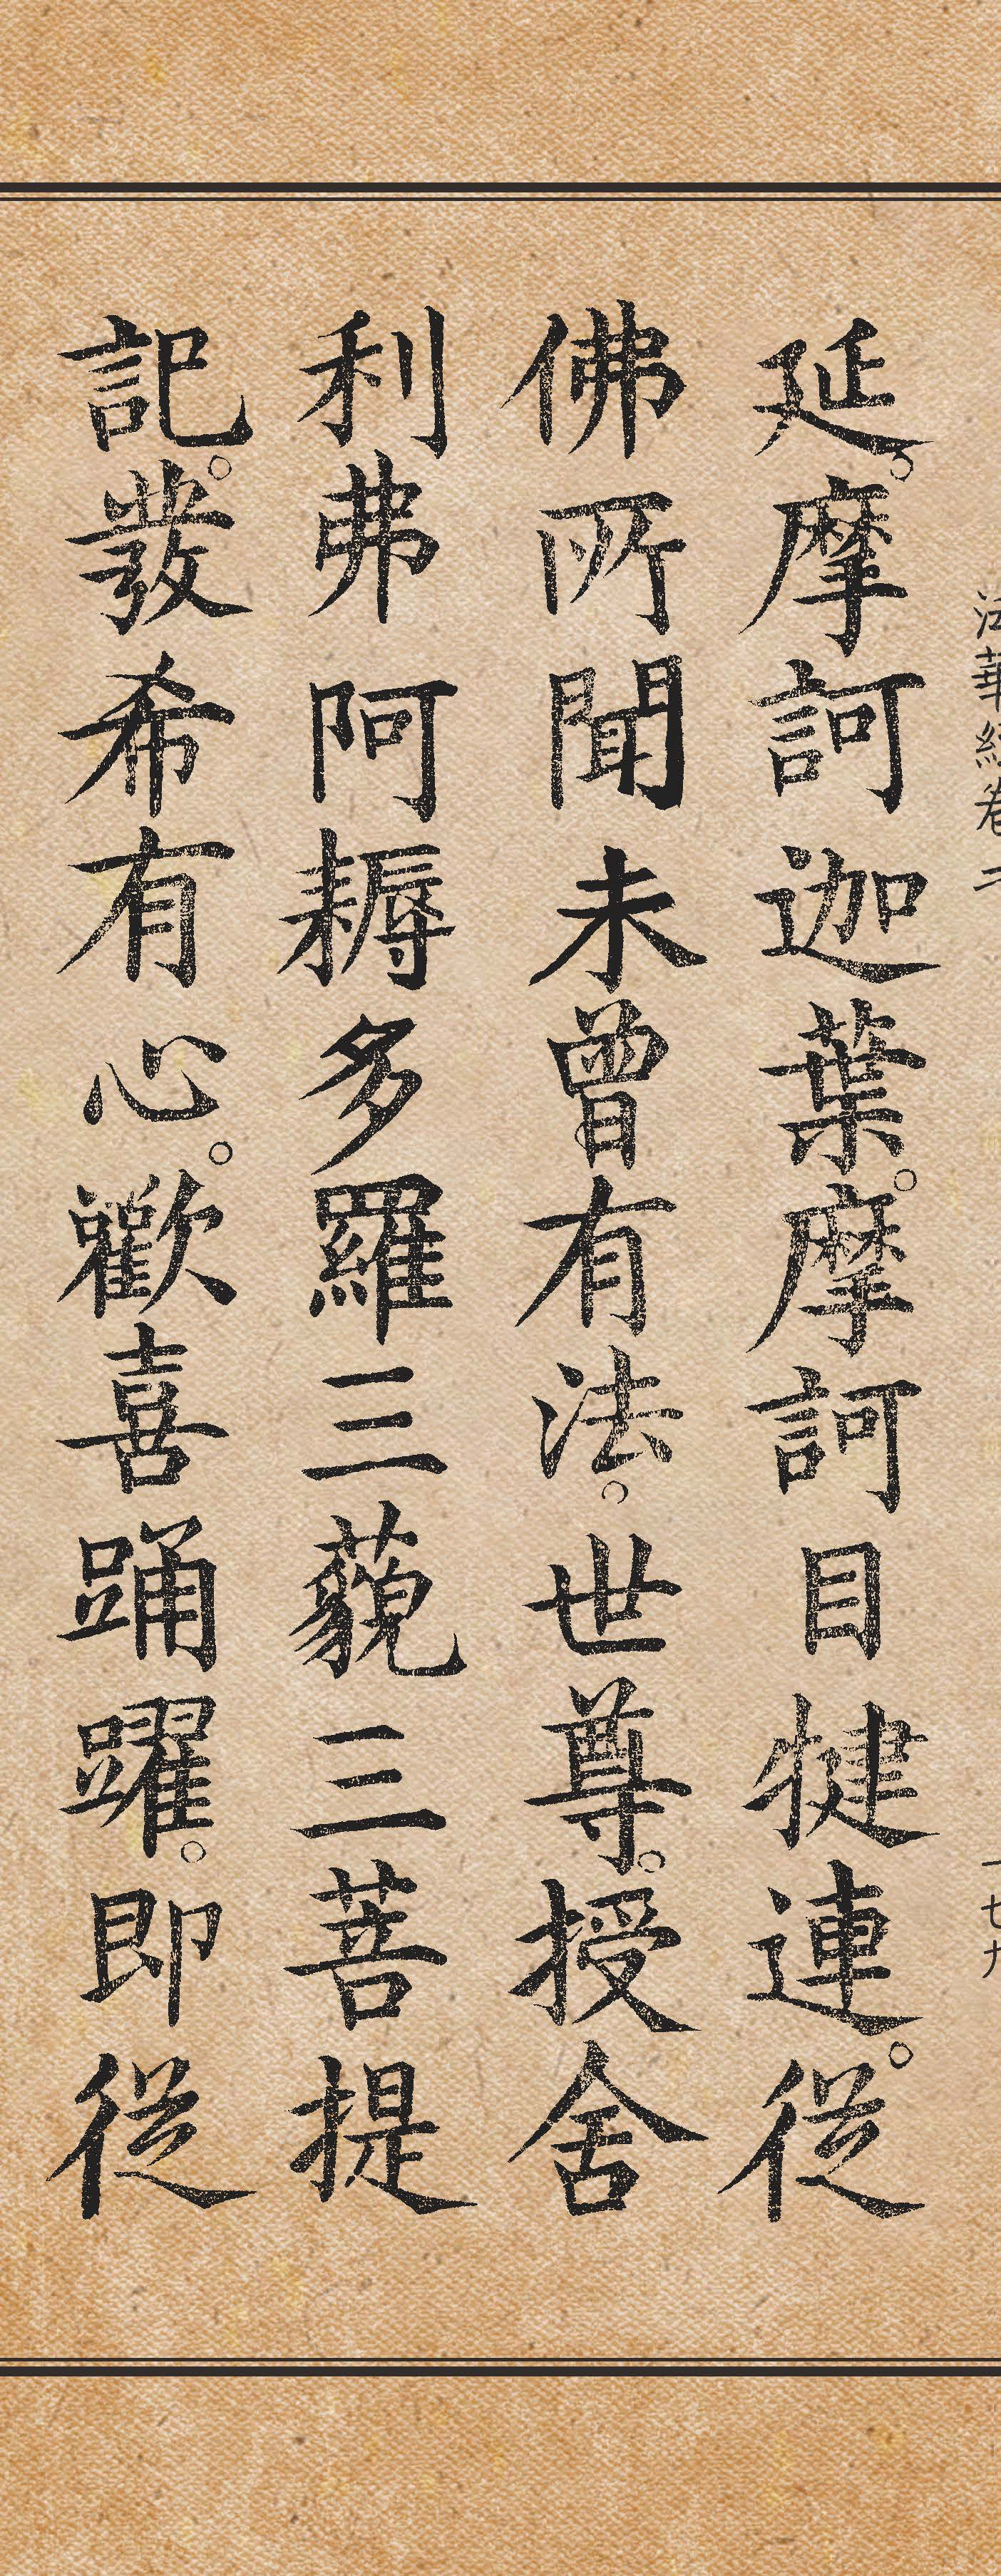 法華經卷二 一七九
延。摩訶迦葉。摩訶目犍連。從
佛所聞未曾有法。世尊。授舍
利弗阿耨多羅三藐三菩提
記。發希有心。歡喜踊躍。即從